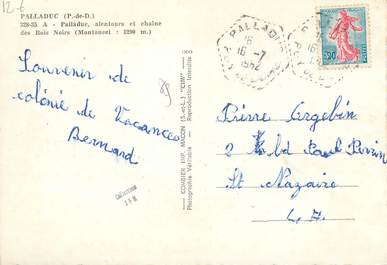 12-6
PALLADUC (P.-de-D.)
228-35 A - Palladuc, alentours et chaîne
des Bois Noirs (Montoncel : 1290 m.)
Souvenir de
colonie de Vacances
Bernard
89
COMBIER IMP. MACON (S.-et-L.) "CIM"
Photographie Véritable Reproduction Interdite
Collections
PALLADUC
16
16-7
PUY DE DOME
0,20
Pierre
2 Bld Paul Perrin
St Nazaire
L. A.